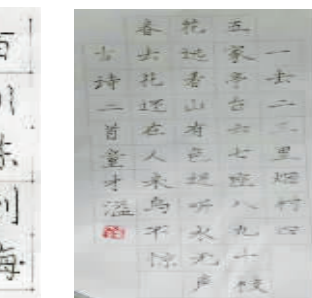 百川东到海
一去二三里烟村四
五家亭台六七座八九十枝
花远看山有色近听水无声
春去花还在人来鸟不惊
古诗二首童才溢